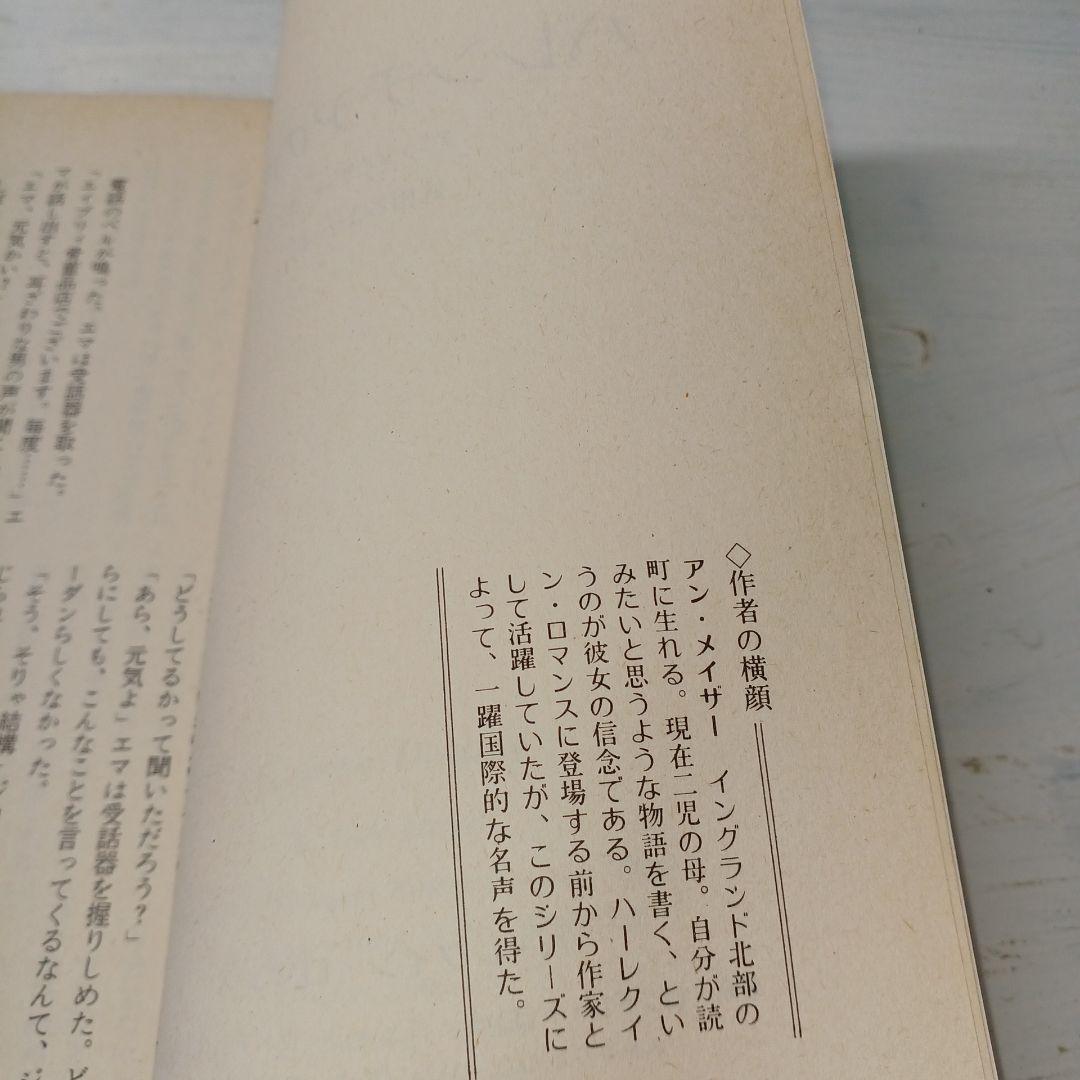 ◇作者の横顔
アン・メイザー　イングランド北部の
町に生れる。現在二児の母。自分が読
みたいと思うような物語を書く、とい
うのが彼女の信念である。ハーレクイ
ン・ロマンスに登場する前から作家と
して活躍していたが、このシリーズに
よって、一躍国際的な名声を得た。
電話のベルが鳴った。エマは受話器を取った。
「エイブリィ骨董品店でございます。毎度……」エ
マが話し出すと、耳ざわりな男の声が聞
「エマ、元気かい？」
「どうしてるかって聞いただろう？」
「あら、元気よ」エマは受話器を握りしめた。ビ
らにしても、こんなことを言ってくるなんて、ジ
ーダンらしくなかった。
「そう。そりゃ結構